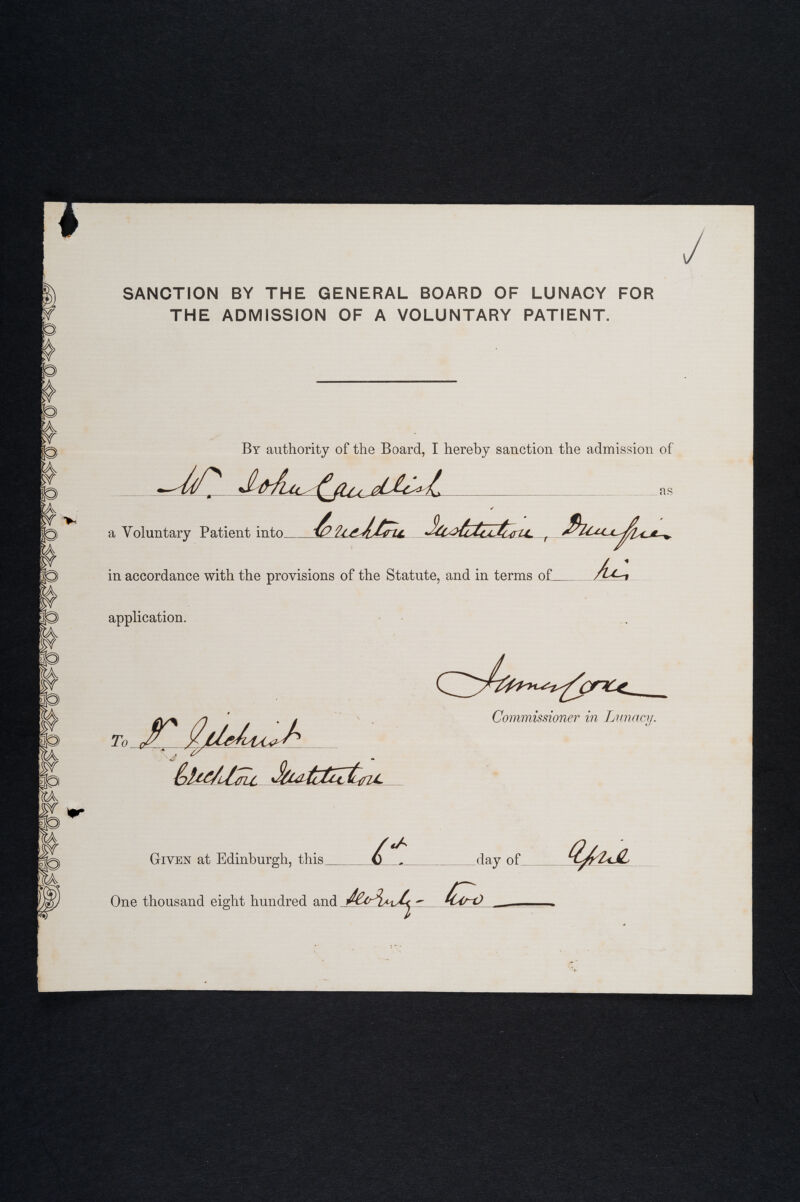 SANCTION BY THE GENERAL BOARD OF LUNACY FOR
THE ADMISSION OF A VOLUNTARY PATIENT.
By authority of the Board, I hereby sanction the admission of
John Candlish as
a Voluntary Patient into Crichton Institution, Dumfries
in accordance with the provisions of the Statute, and in terms of his
application.
James Coxe
Commissioner in Lunacy.
To Dr. Gilchrist
Crichton Institution
Given at Edinburgh, this 6th. day of April
One thousand eight hundred and seventy-two